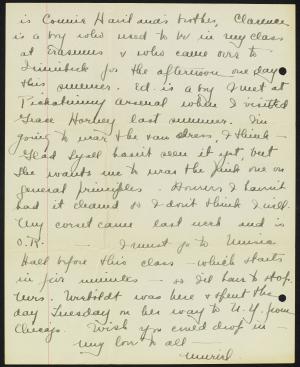 is Connie Haviland's brother, Clarence
is a boy who used to be in my class
at Erasmus & who came over to
for the afternoon one day
this summer. Ed. is a boy I met at
Pickatinny Arsenal when I visited
Grace Horney last summer. I'm
going to wear the tan dress, I think —
Glad Lysell hasn't seen it yet, but
she wants me to wear the pink one on
general principles. However I haven't
had it cleaned so I don't think I will.
My corset came last week and is
O.K. — I must go to Music
Hall before this class — which starts
in five minutes — so I'll have to stop.
Mrs. was here & spent the
day Tuesday on her way to N.Y. from
Chicago. Wish you could drop in —
My love to all —
Muriel